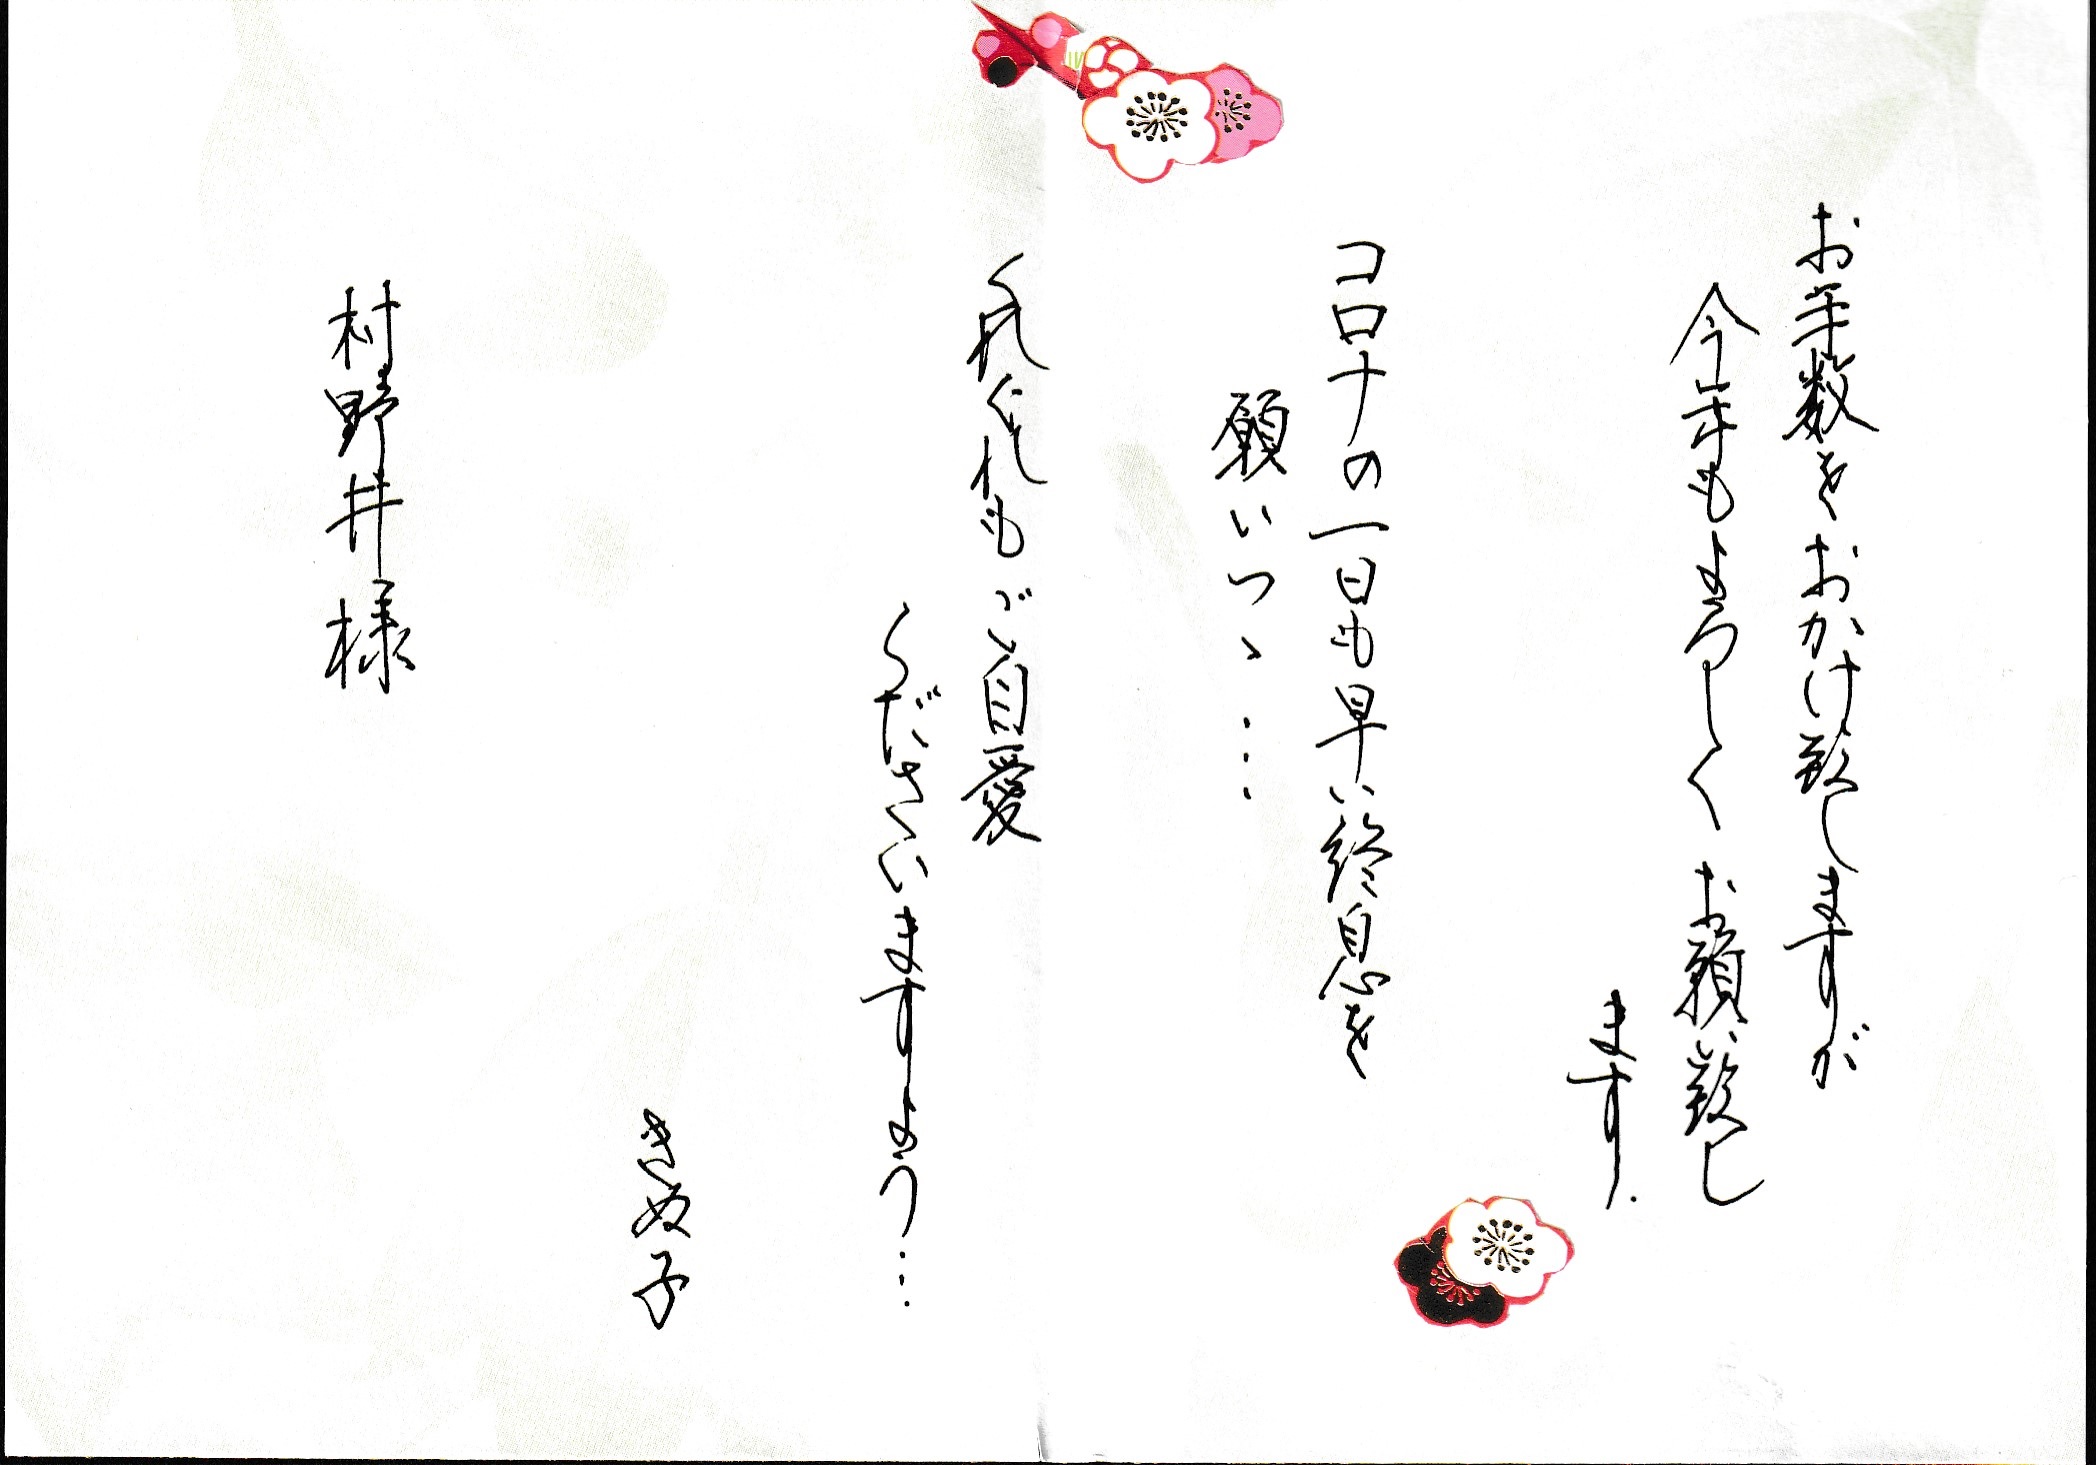 お手数をおかけ致しますが
今年もよろしくお願い致し
ます.
コロナの一日も早い終息を
願いつゝ…
くれぐれもご自愛
くださいますよう…
きぬ子
村野井様